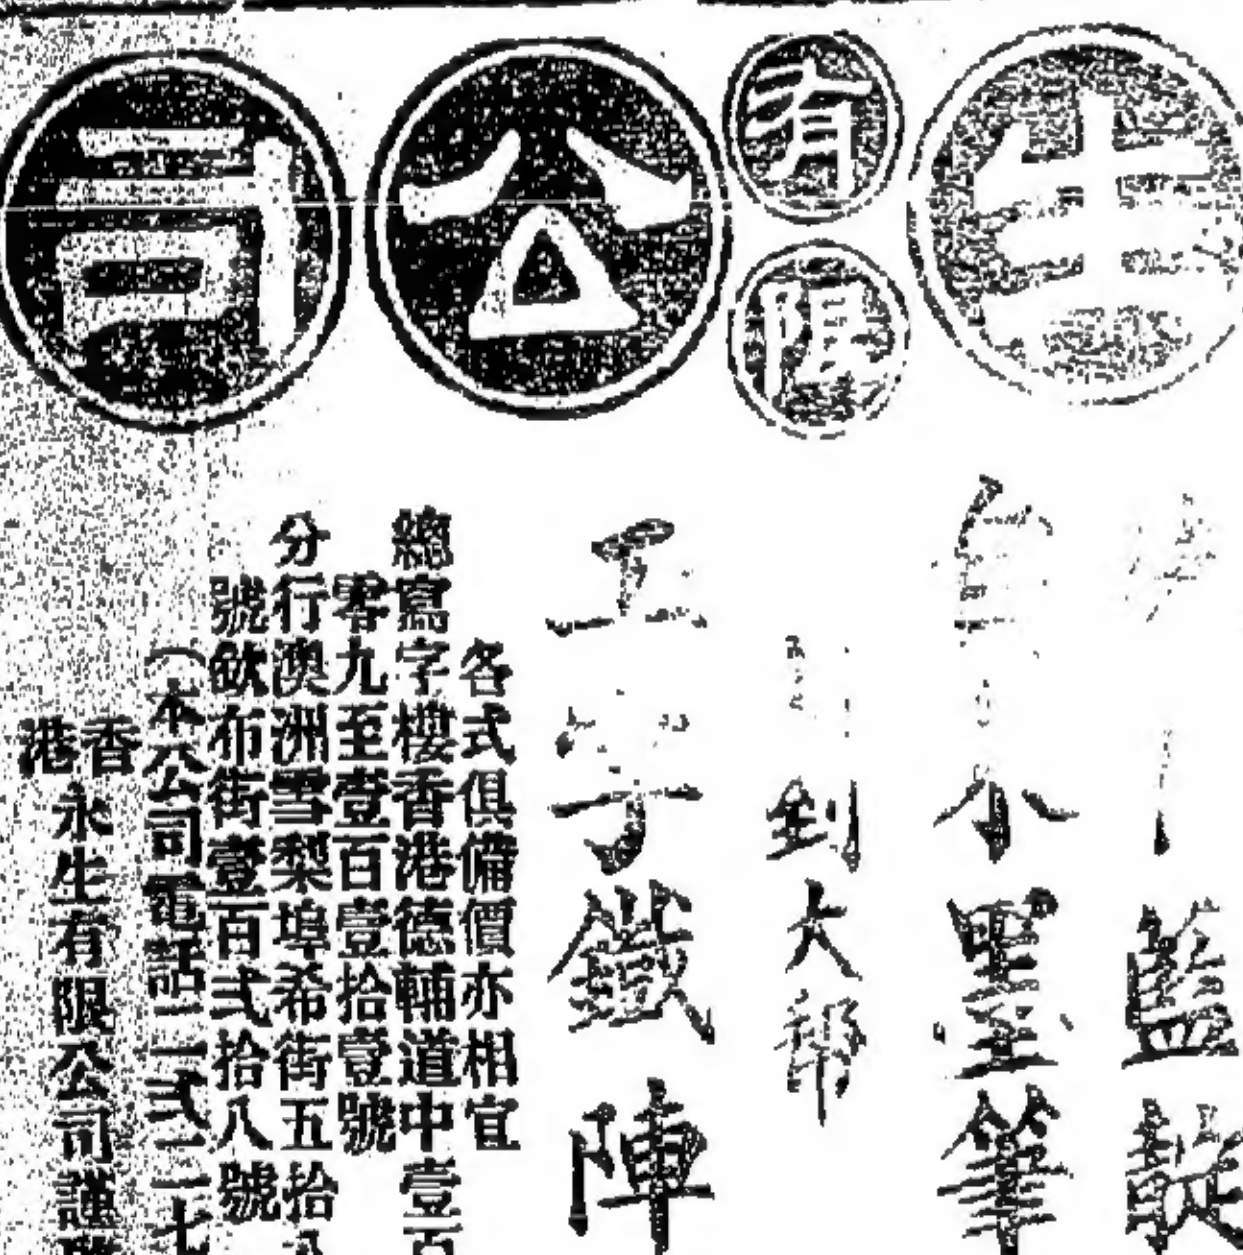 生有限公司
藍靛
自來水墨筆
到大幫
工字鐵陣
各式俱備價亦相宜
總寫字樓香港德輔道中壹百
零九至壹百壹拾壹號
分行澳洲雪梨埠希街五拾八
號歃布街壹百弍拾八號
(本公司電話二一弍二七
香港
永生有限公司謹